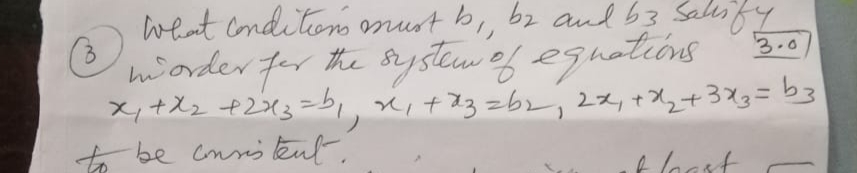 (3) What conditions must b1, b2 and b3 satisfy
in order for the system of equations 3.0
x1 + x2 + 2x3 = b1, x1 + x3 = b2, 2x1 + x2 + 3x3 = b3
to be consistent.
at least